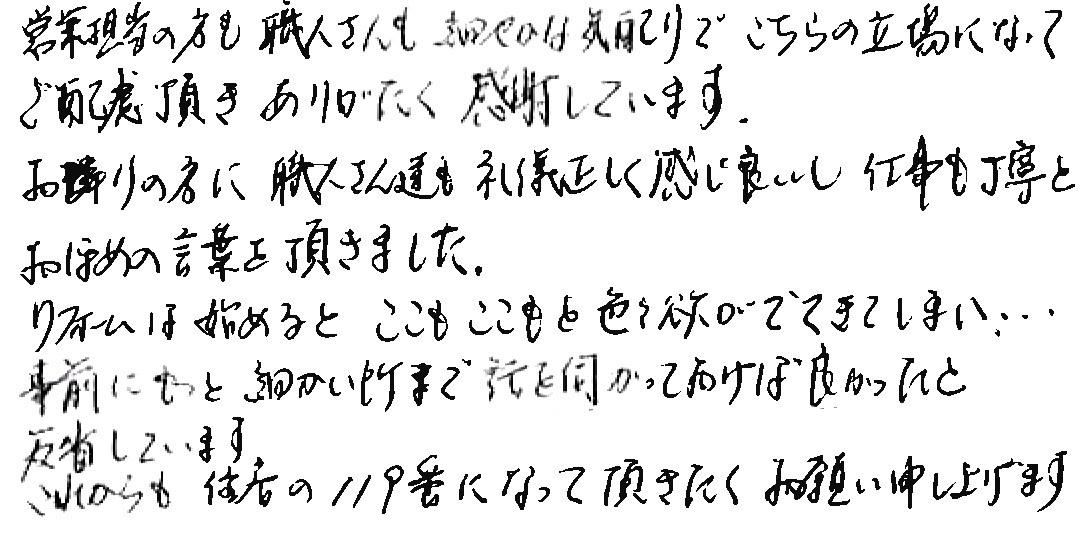 営業担当の方も 職人さんも 細やかな気配りで こちらの立場になって
ご配慮頂き ありがたく 感謝しています.
お隣りの方に 職人さん達も 礼儀正しく感じ良いし 仕事も丁寧と
おほめの言葉を頂きました。
リフォームは始めると ここも ここもと 色々欲がでてきてしまい…
事前にもっと 細かい所まで 話を伺っておけば良かったと
反省しています
これからも 住居の119番になって頂きたく お願い申し上げます